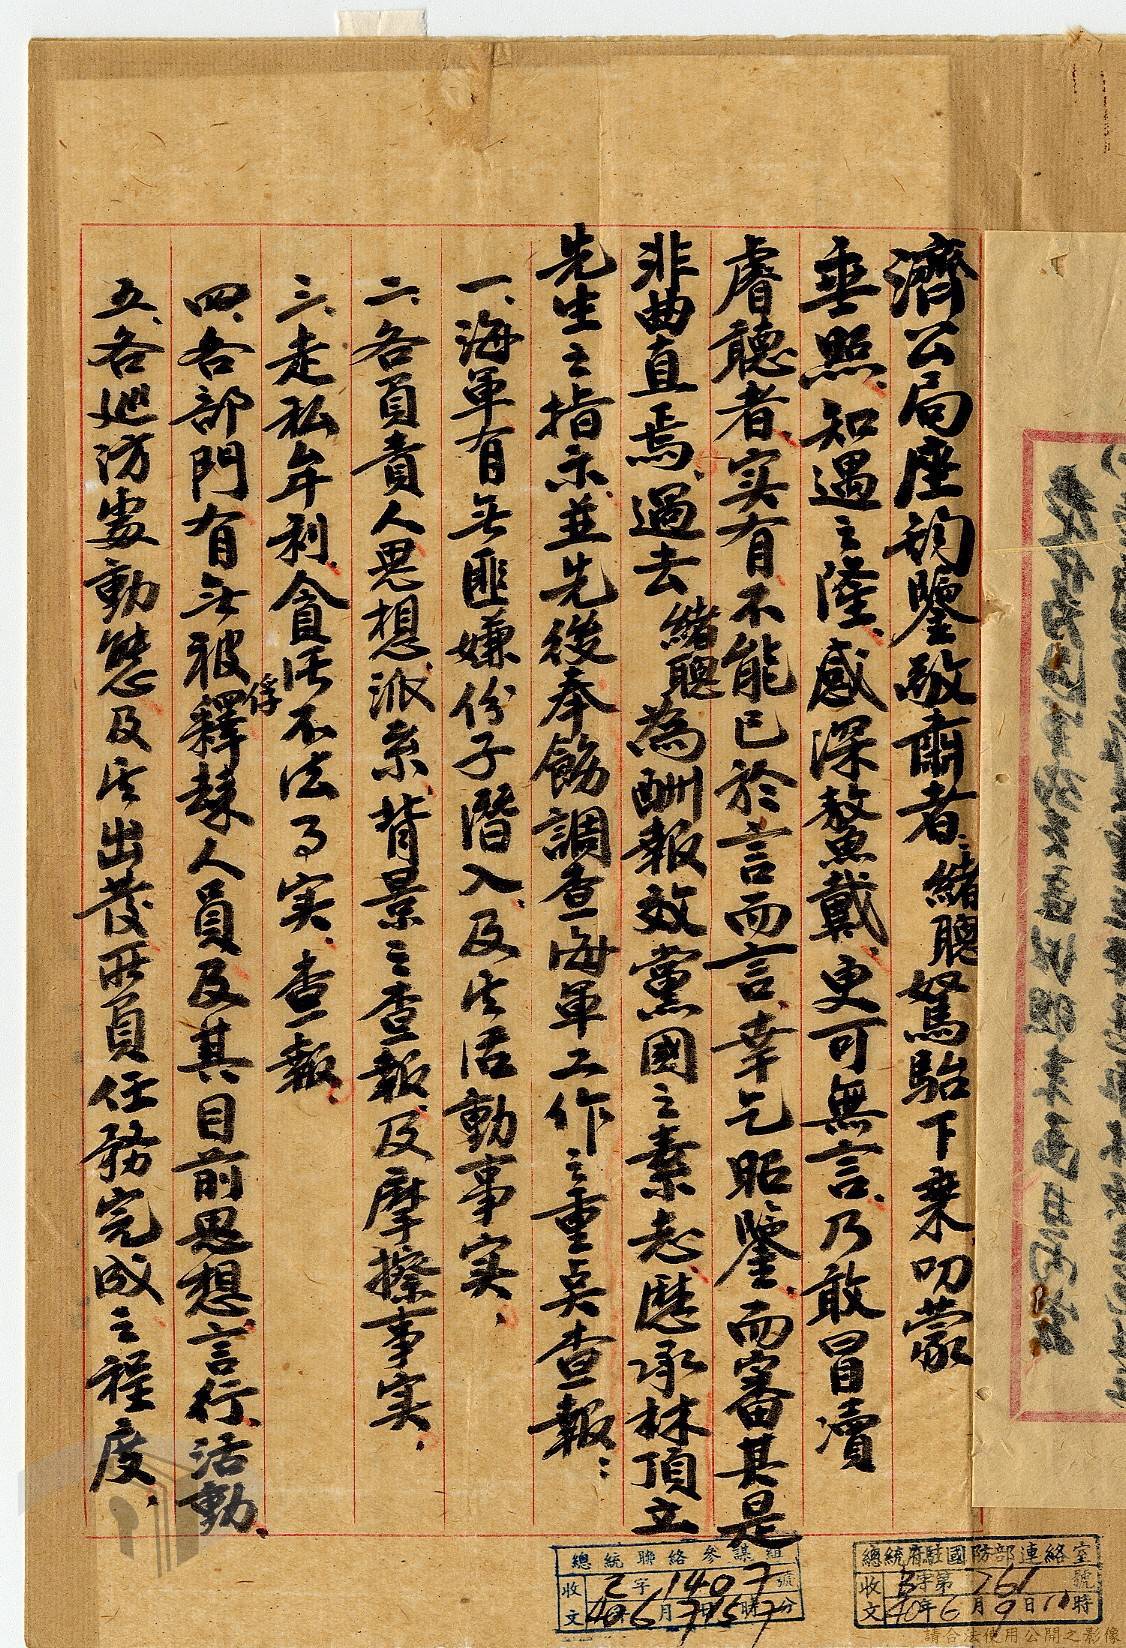 濟公局座鈞鑒敬肅者、緒聰駑駘下乘叨蒙
垂照、知遇之隆、感深鰲戴、更可無言、乃敢冒瀆
睿聽者、实有不能已於言而言、幸乞昭鑒、而審其是
非曲直焉、過去緒聰為酬報效黨國之素志、歷承林頂立
先生之指示、並先後奉飭調查海軍工作之重点查報：
一、海軍有无匪嫌份子潛入、及其活動事实、
二、各負責人思想、派系、背景之查報、及摩擦事实、
三、走私牟利、貪污不法了实、查報、
四、各部門有无被俘釋放人員及其目前思想、言行、活動、
五、各巡防處動態及其出發所負任務完成之程度、
總統聯絡參謀組
收文 乙字1407號
40年6月7日15時7分
總統府駐國防部連絡室
收文 字第761號
40年6月9日11時
請合法使用公開之影像